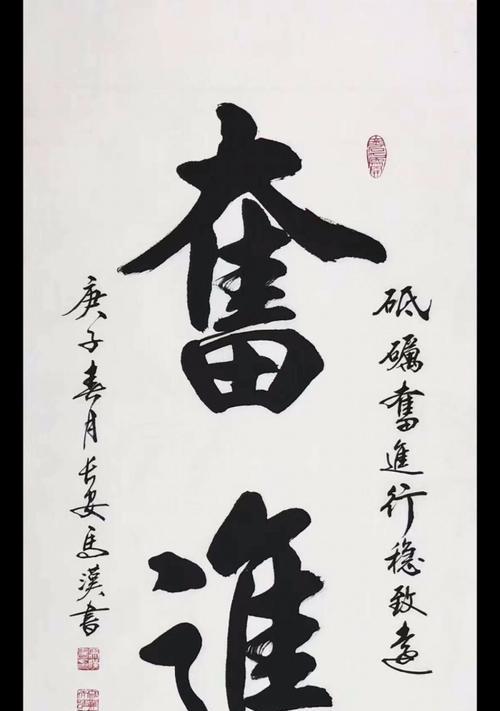 砥礪奮進行穩致遠
奮進
庚子春月長安馬漢書